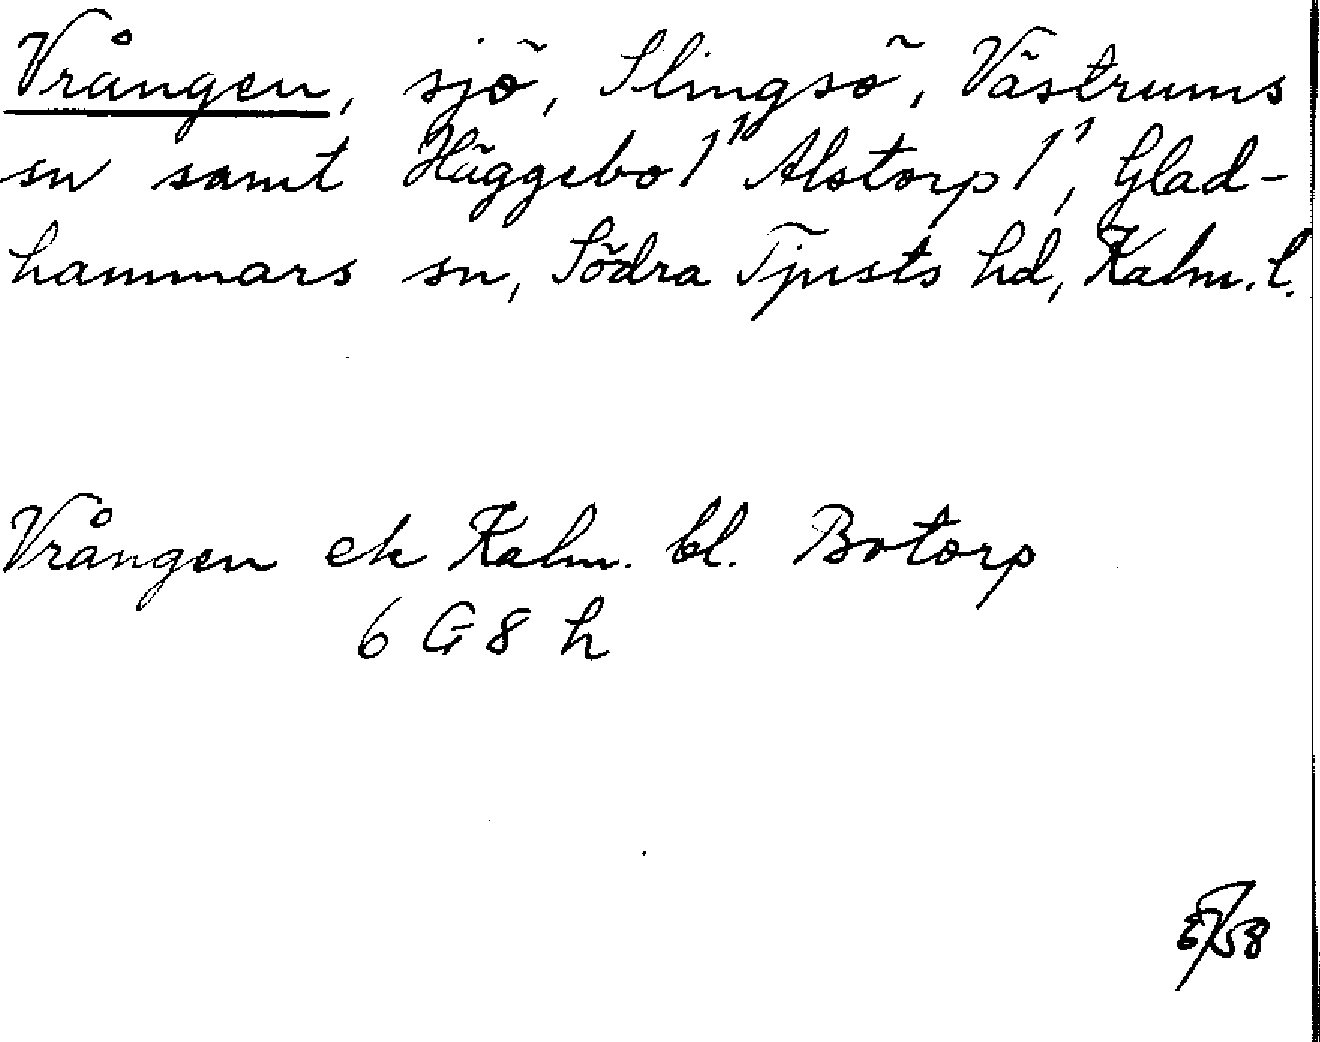 Vrången, sjö, Slingsö, Västrums
sn samt Häggebo 1¹, Alstorp 1¹, Glad-
hammars sn, Södra Tjusts hd, Kalm. l.
Vrången ek Kalm. bl. Botorp
6 G 8 h